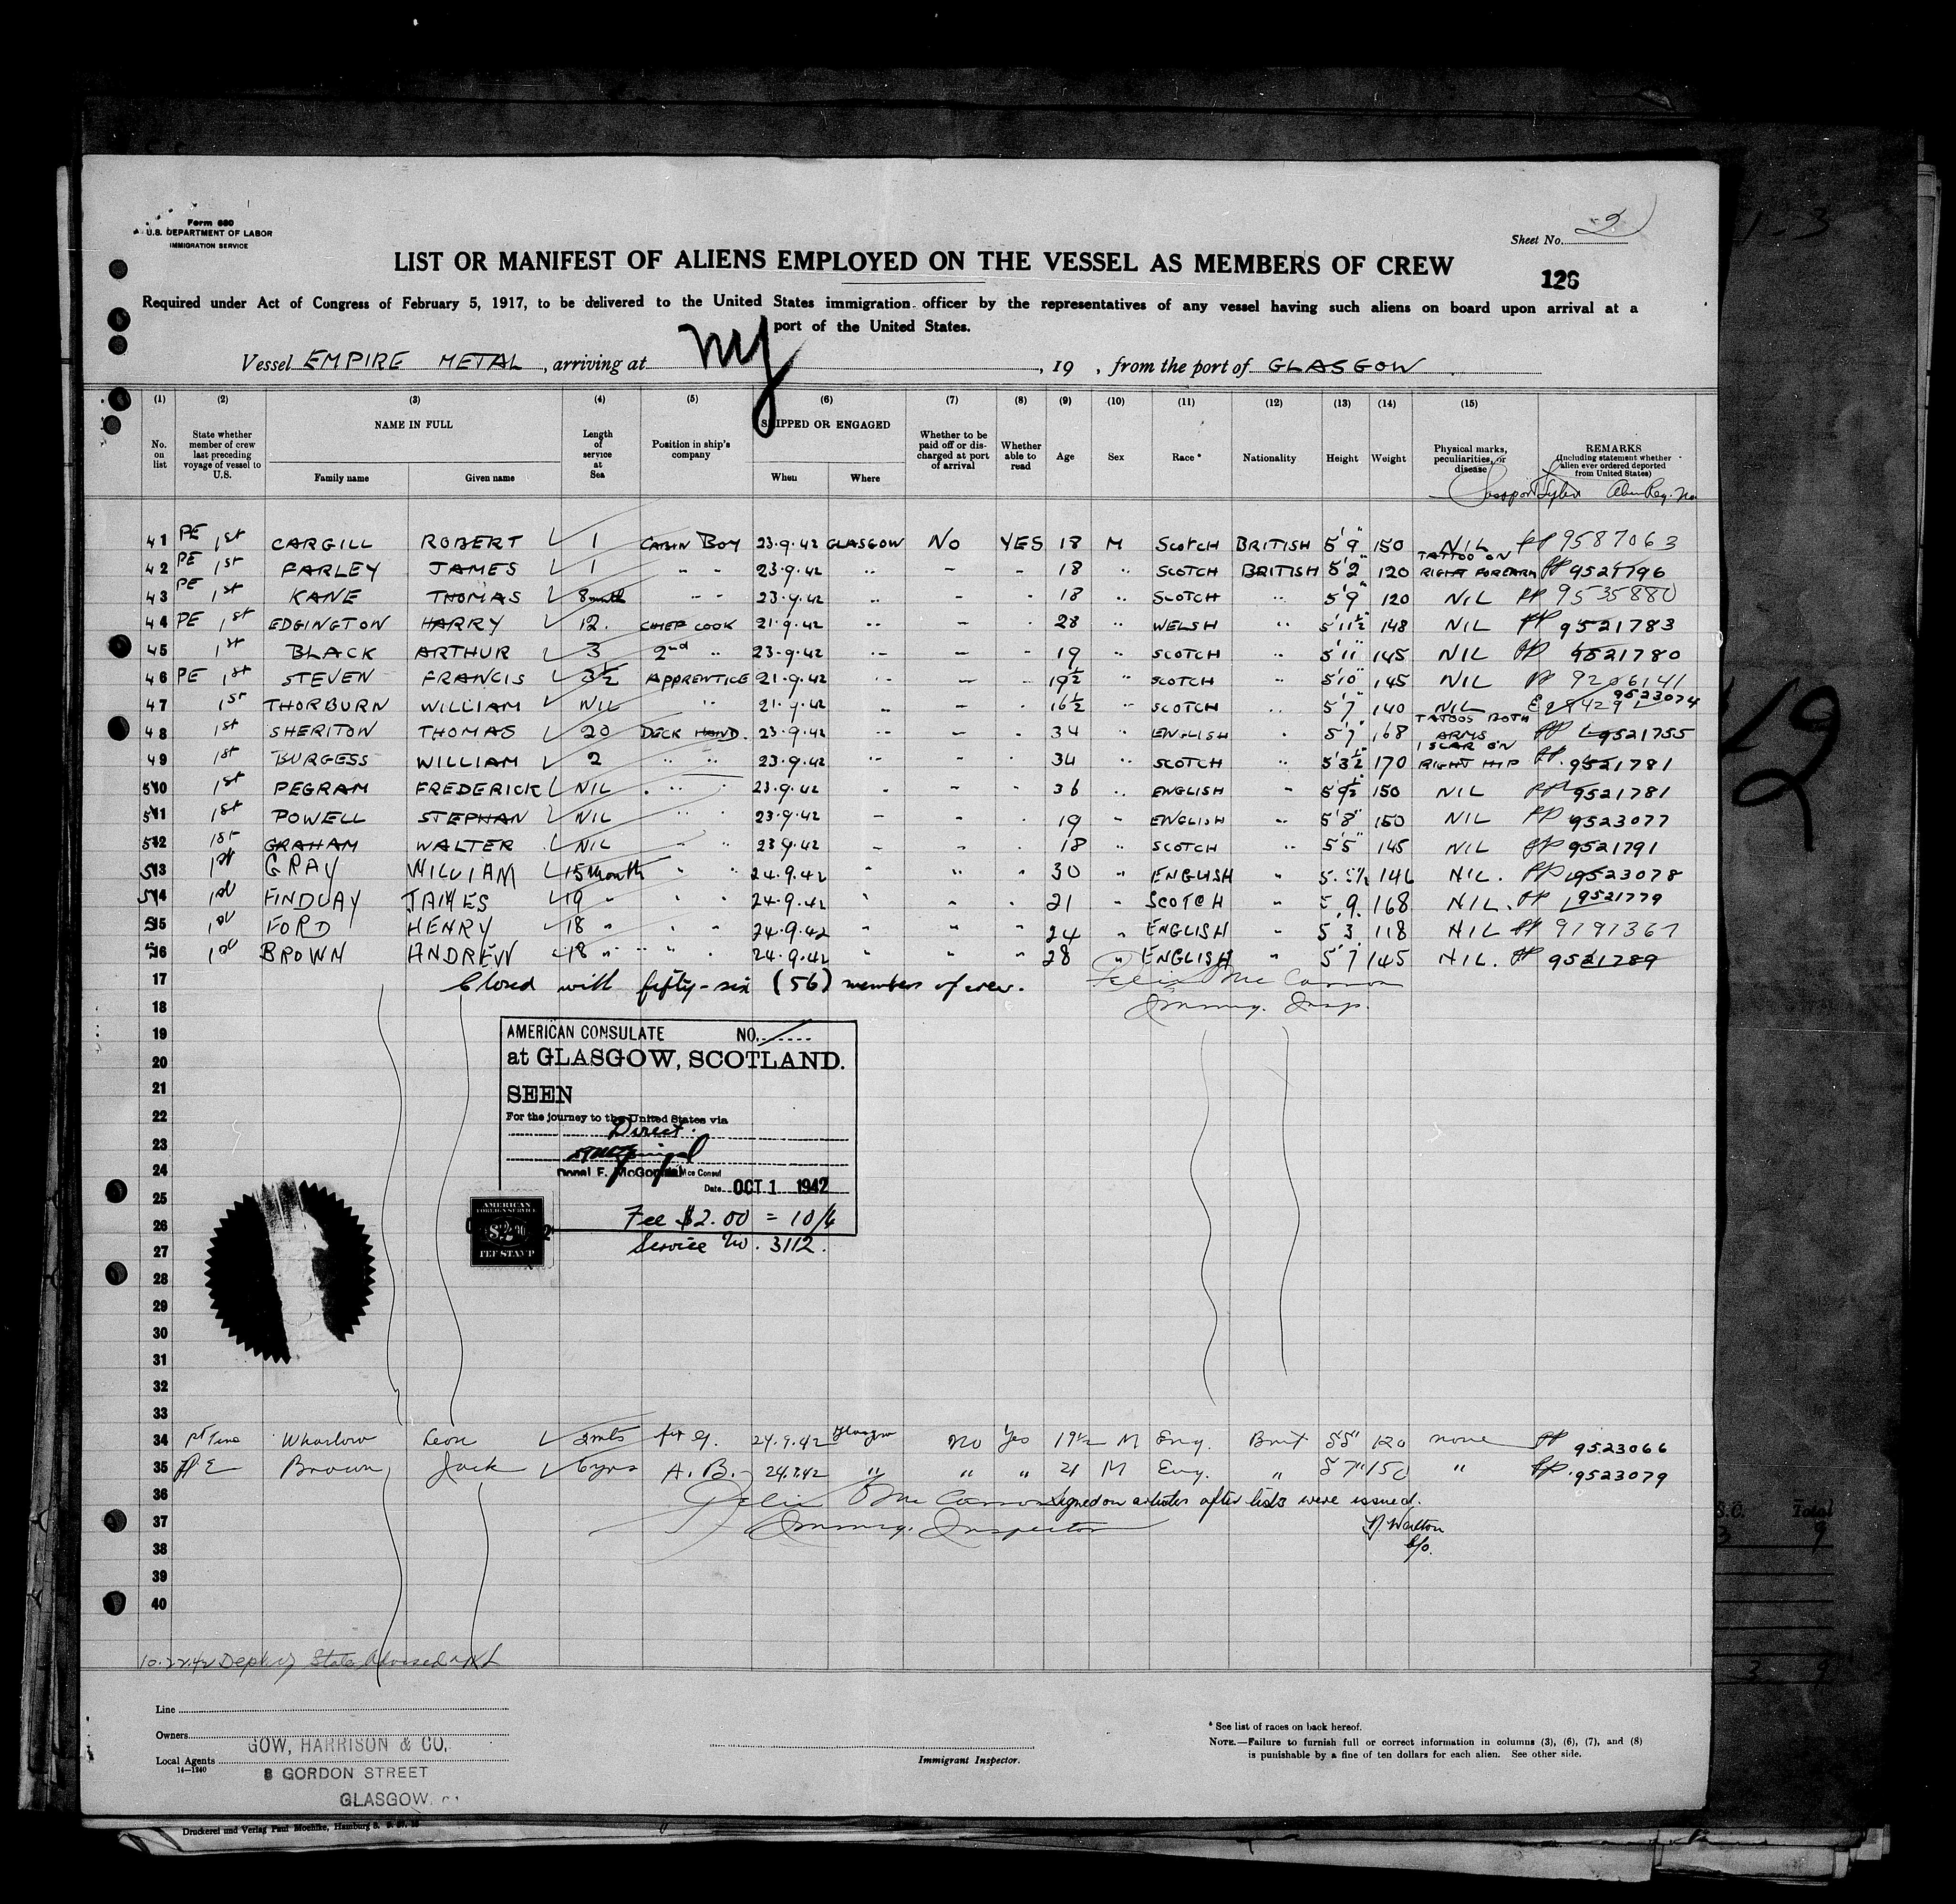 Form 680
U.S. DEPARTMENT OF LABOR
IMMIGRATION SERVICE
Sheet No. 2
LIST OR MANIFEST OF ALIENS EMPLOYED ON THE VESSEL AS MEMBERS OF CREW
126
Required under Act of Congress of February 5, 1917, to be delivered to the United States immigration officer by the representatives of any vessel having such aliens on board upon arrival at a
port of the United States.
Vessel EMPIRE METAL, arriving at NY, 19 , from the port of GLASGOW
(1) (2) (3) (4) (5) (6) (7) (8) (9) (10) (11) (12) (13) (14) (15)
No. on list State whether member of crew last preceding voyage of vessel to U.S. NAME IN FULL Family name Given name Length of service at Sea Position in ship's company SHIPPED OR ENGAGED When Where Whether to be paid off or discharged at port of arrival Whether able to read Age Sex Race* Nationality Height Weight Physical marks, peculiarities, or disease REMARKS (Including statement whether alien ever ordered deported from United States)
41 PE 1st CARGILL ROBERT 1 CABIN BOY 23.9.42 GLASGOW NO YES 18 M SCOTCH BRITISH 5'9" 150 NIL PP 9587063
42 PE 1st FARLEY JAMES 1 " " 23.9.42 " - - 18 " SCOTCH BRITISH 5'2" 120 TATTOO ON RIGHT FOREARM PP 9521796
43 PE 1st KANE THOMAS 8 month " " 23.9.42 " - - 18 " SCOTCH " 5'9" 120 NIL PP 9535880
44 PE 1st EDGINGTON HARRY 12. CHIEF COOK 21.9.42 " - " 28 " WELSH " 5'11½ 148 NIL PP 9521783
45 1st BLACK ARTHUR 3 2nd " 23.9.42 " - " 19 " SCOTCH " 5'11" 145 NIL PP 9521780
46 PE 1st STEVEN FRANCIS 3½ APPRENTICE 21.9.42 " - " 19½ " SCOTCH " 5'10" 145 NIL PP 9206141
47 1st THORBURN WILLIAM NIL " 21.9.42 " - " 16½ " SCOTCH " 5'7" 140 NIL 9523074
48 1st SHERITON THOMAS 20 DECK HAND. 23.9.42 " - " 34 " ENGLISH " 5'7" 168 TATOOS BOTH ARMS PP 9521755
49 1st BURGESS WILLIAM 2 " " 23.9.42 " - " 34 " SCOTCH " 5'3½ 170 1 SCAR ON RIGHT HIP PP 9521781
510 1st PEGRAM FREDERICK NIL " " 23.9.42 " - " 36 " ENGLISH " 5'9½ 150 NIL PP 9521781
511 1st POWELL STEPHAN NIL " " 23.9.42 - - " 19 " ENGLISH " 5'8" 150 NIL PP 9523077
512 1st GRAHAM WALTER NIL " " 23.9.42 - - " 18 " SCOTCH " 5'5" 145 NIL PP 9521791
513 1st GRAY WILLIAM 15 month " " 24.9.42 " " " 30 " ENGLISH " NIL. PP 9523078
514 1st FINDLAY JAMES 19 " " " 24.9.42 " " " 21 " SCOTCH " 5.9. 168 NIL. PP 9521779
515 1st FORD HENRY 18 " " " 24.9.42 " " " 24 " ENGLISH " 5 3 118 NIL PP 9191367
516 1st BROWN ANDREW 18 " " " 24.9.42 " " " 28 " ENGLISH 5'7 145 NIL. PP 9521789
17 Closed with fifty-six (56) members of crew.
18 Immig. Insp.
19
20
21
22
23
24
25
26
27
28
29
30
31
32
33
AMERICAN CONSULATE NO.
at GLASGOW, SCOTLAND.
SEEN
For the journey to the United States via
Direct.
Vice Consul
Date OCT 1 1942
Fee $2.00 = 10/4
Service No. 3112.
AMERICAN
FOREIGN SERVICE
FEE STAMP
34 Wharlow Leon 2mts 24.9.42 Glasgow No Yes 19½ M Eng. Brit 5'5" 120 none PP 9523066
35 PE Brown Jack 6yrs A.B. 24.9.42 " " " 21 M Eng. " 5'7" 150 " PP 9523079
36 Signed on articles after lists were issued.
37 Immig. Inspector
38
39
40
Line
Owners
GOW, HARRISON & CO.
Local Agents
8 GORDON STREET
14—1240
GLASGOW.
Immigrant Inspector.
* See list of races on back hereof.
NOTE.—Failure to furnish full or correct information in columns (3), (6), (7), and (8)
is punishable by a fine of ten dollars for each alien. See other side.
Druckerei und Verlag Paul Moehlke, Hamburg